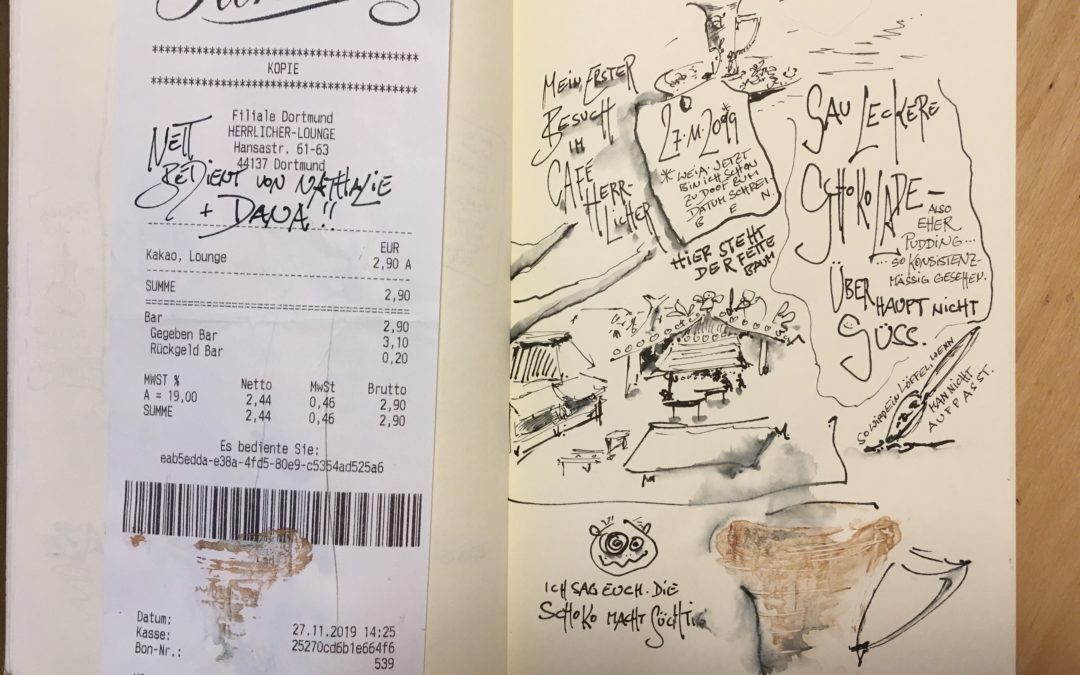 ****************************************
KOPIE
****************************************
Filiale Dortmund
HERRLICHER-LOUNGE
Hansastr. 61-63
44137 Dortmund
NETT
BEDIENT VON NATHALIE
+ DANA!!
EUR
Kakao, Lounge 2,90 A
SUMME 2,90
Bar 2,90
Gegeben Bar 3,10
Rückgeld Bar 0,20
MWST % Netto MwSt Brutto
A = 19,00 2,44 0,46 2,90
SUMME 2,44 0,46 2,90
Es bediente Sie:
eab5edda-e38a-4fd5-80e9-c5354ad525a6
Datum: 27.11.2019 14:25
Kasse: 25270cd6b1e664f6
Bon-Nr.: 539
MEIN ERSTER
BESUCH
IM
CAFÉ
HERR-
LICHER
27.11.2019
* WEIA. JETZT
BIN ICH SCHON
ZU DOOF ZUM
DATUM SCHREI-
B E N.
HIER STEHT
DER FETTE
BAUM
SAU LECKERE
SCHOKOLADE-
ALSO
EHER
PUDDING...
...SO KONSISTENZ-
MÄSSIG GESEHEN.
ÜBER
HAUPT NICHT
SÜSS.
SO WIRD EIN LÖFFEL WENN
KAN NICHT
AUFPASST.
ICH SAG EUCH. DIE
SCHOKO MACHT SÜCHTIG